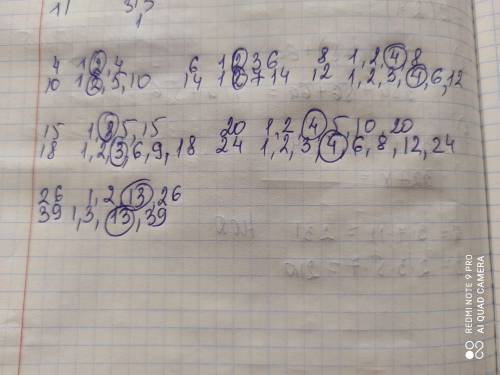 11 3 3
1
4 1 2, 4 6 1 2 3 6 8 1, 2, 4, 8
10 1 2, 5, 10 14 1 2 7 14 12 1, 2, 3, 4, 6, 12
15 1, 3 5, 15 20 1, 2, 4 5, 10, 20
18 1, 2, 3, 6, 9, 18 24 1, 2, 3 4, 6, 8, 12, 24
26 1, 2, 13, 26
39 1, 3, 13, 39
REDMI NOTE 9 PRO
AI QUAD CAMERA